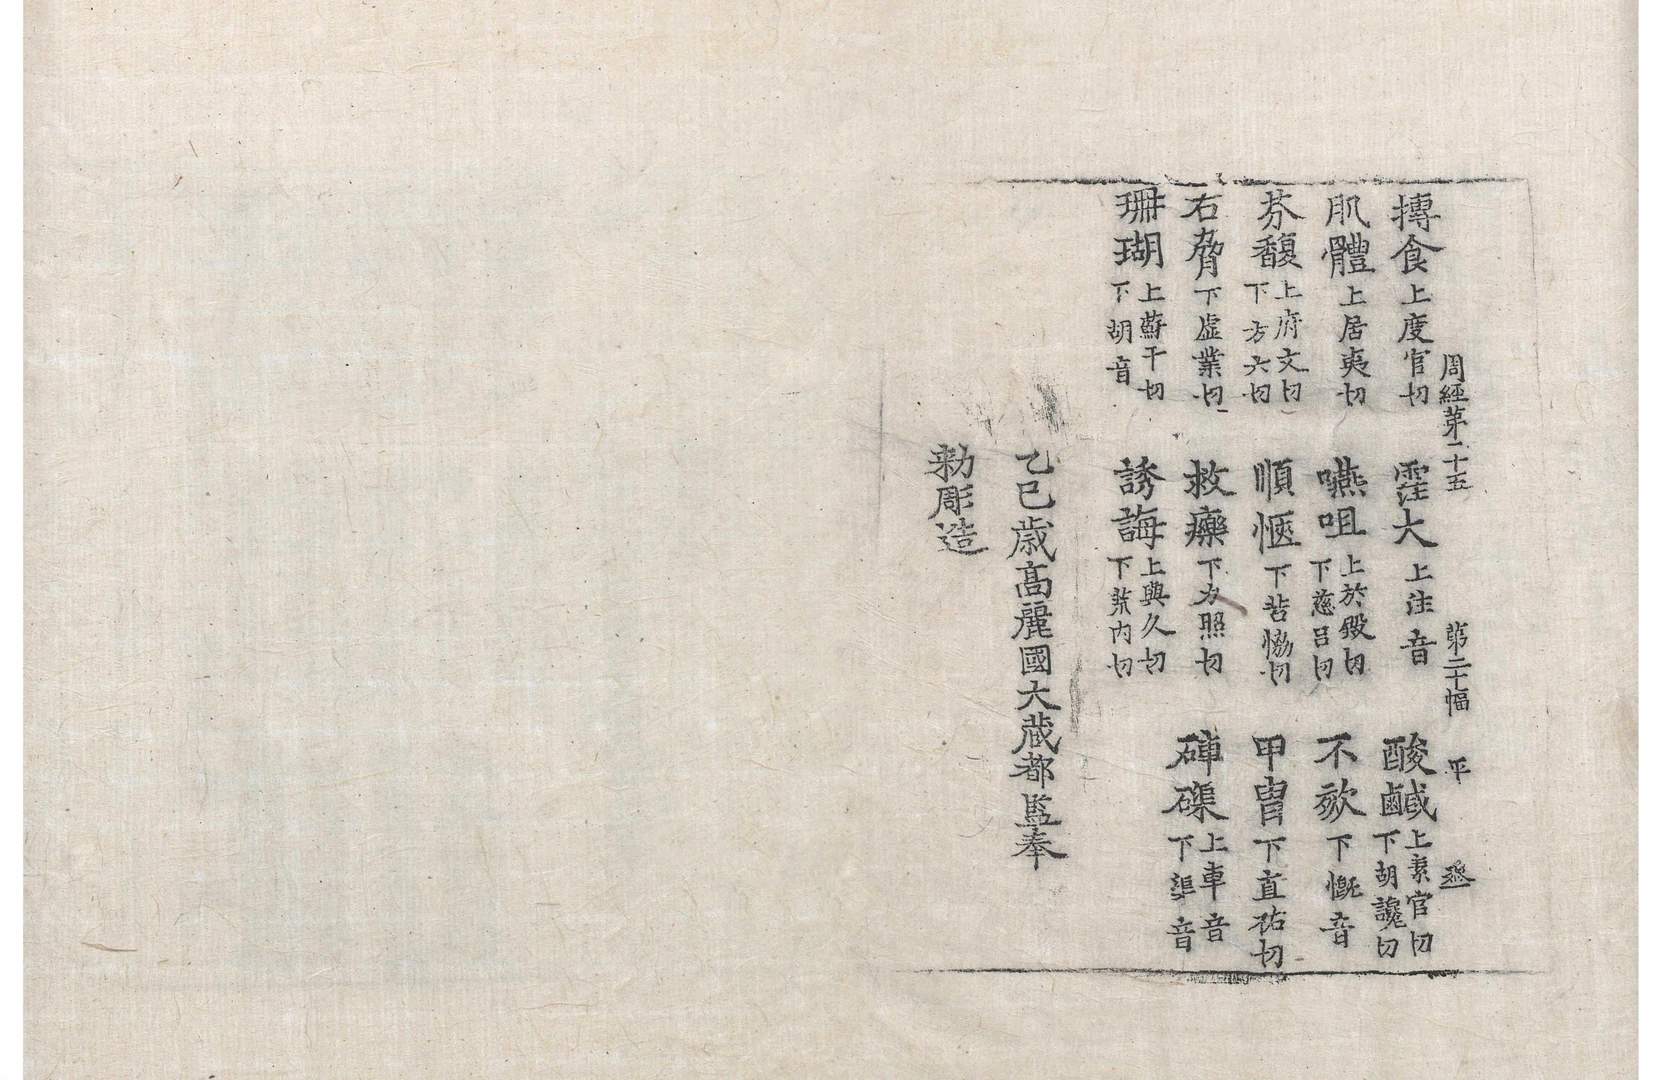 周經第二十五 第二十幅 平
摶食上度官切 霔大上注音 酸鹹上素官切下胡讒切
肌體上居夷切 嚥咀上於殿切下慈呂切 不欬下慨音
芬馥上府文切下方六切 順愜下苦恊切 甲冑下直祐切
右脅下虛業切 救療下力照切 硨磲上車音下渠音
珊瑚上蘇干切下胡音 誘誨上與久切下荒內切
乙巳歲高麗國大藏都監奉
勑彫造